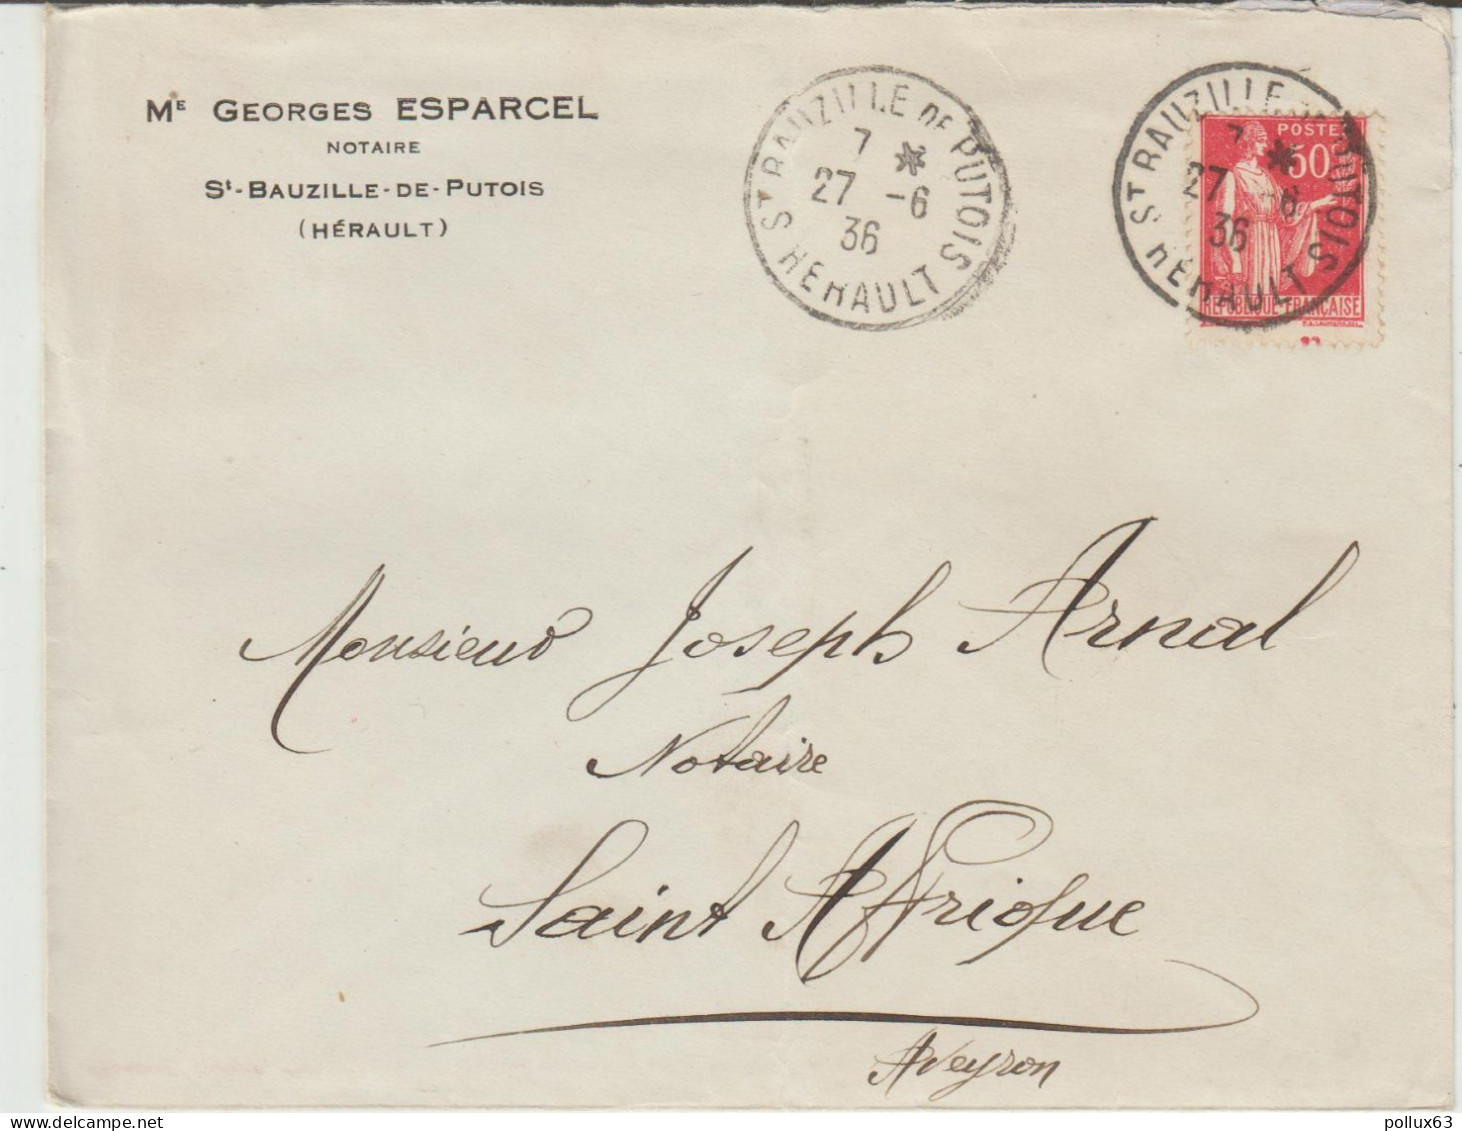 Mᴱ GEORGES ESPARCEL
NOTAIRE
Sᵗ-BAUZILLE-DE-PUTOIS
(HÉRAULT)
ST BAUZILLE DE PUTOIS
7 *
27 -6
36
HERAULT
ST BAUZILLE DE PUTOIS
7 *
27 -6
36
HERAULT
POSTES
50
REPUBLIQUE-FRANÇAISE
Monsieur Joseph Arnal
Notaire
Saint Affrique
Aveyron
delcampe.net
pollux63